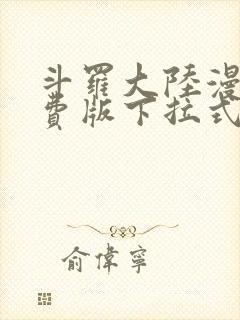 斗羅大陸漫
費版下拉式
俞偉寧